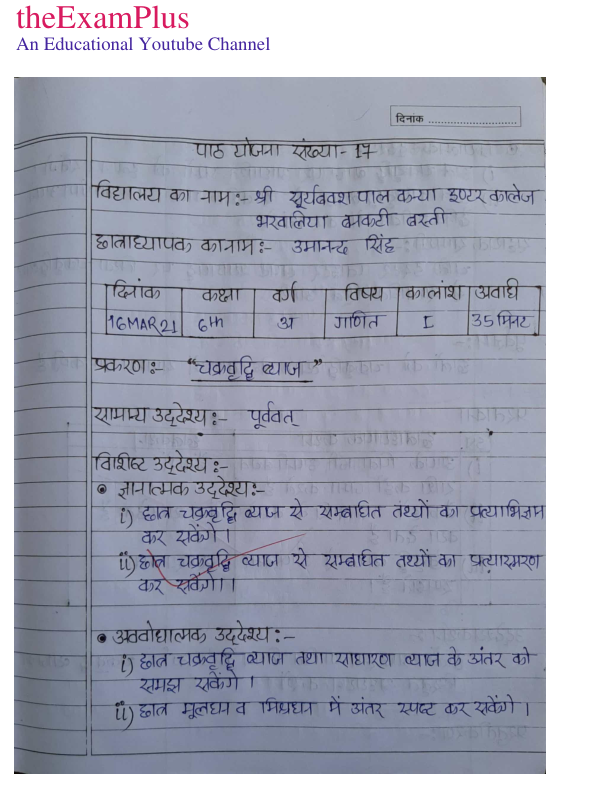 theExamPlus
An Educational Youtube Channel
दिनांक
पाठ योजना संख्या - 17
विद्यालय का नाम:- श्री सूर्यबक्श पाल कन्या इण्टर कालेज
बनकटी बस्ती
छात्राध्यापक का नाम:- उमानन्द सिंह
दिनांक कक्षा वर्ग विषय कालांश अवधि
16 MAR 21 6th अ गणित I 35 मिनट
प्रकरण:- "चक्रवृद्धि ब्याज"
सामान्य उद्देश्य:- पूर्ववत्
विशिष्ट उद्देश्य:-
• ज्ञानात्मक उद्देश्य:-
i) छात्र चक्रवृद्धि ब्याज से सम्बन्धित तथ्यों का प्रत्याभिज्ञान
कर सकेंगे ।
ii) छात्र चक्रवृद्धि ब्याज से सम्बन्धित तथ्यों का प्रत्यास्मरण
कर सकेंगे ।।
• अवबोधात्मक उद्देश्य:-
i) छात्र चक्रवृद्धि ब्याज तथा साधारण ब्याज के अंतर को
समझ सकेंगे ।
ii) छात्र मूलधन व मिश्रधन में अंतर स्पष्ट कर सकेंगे ।